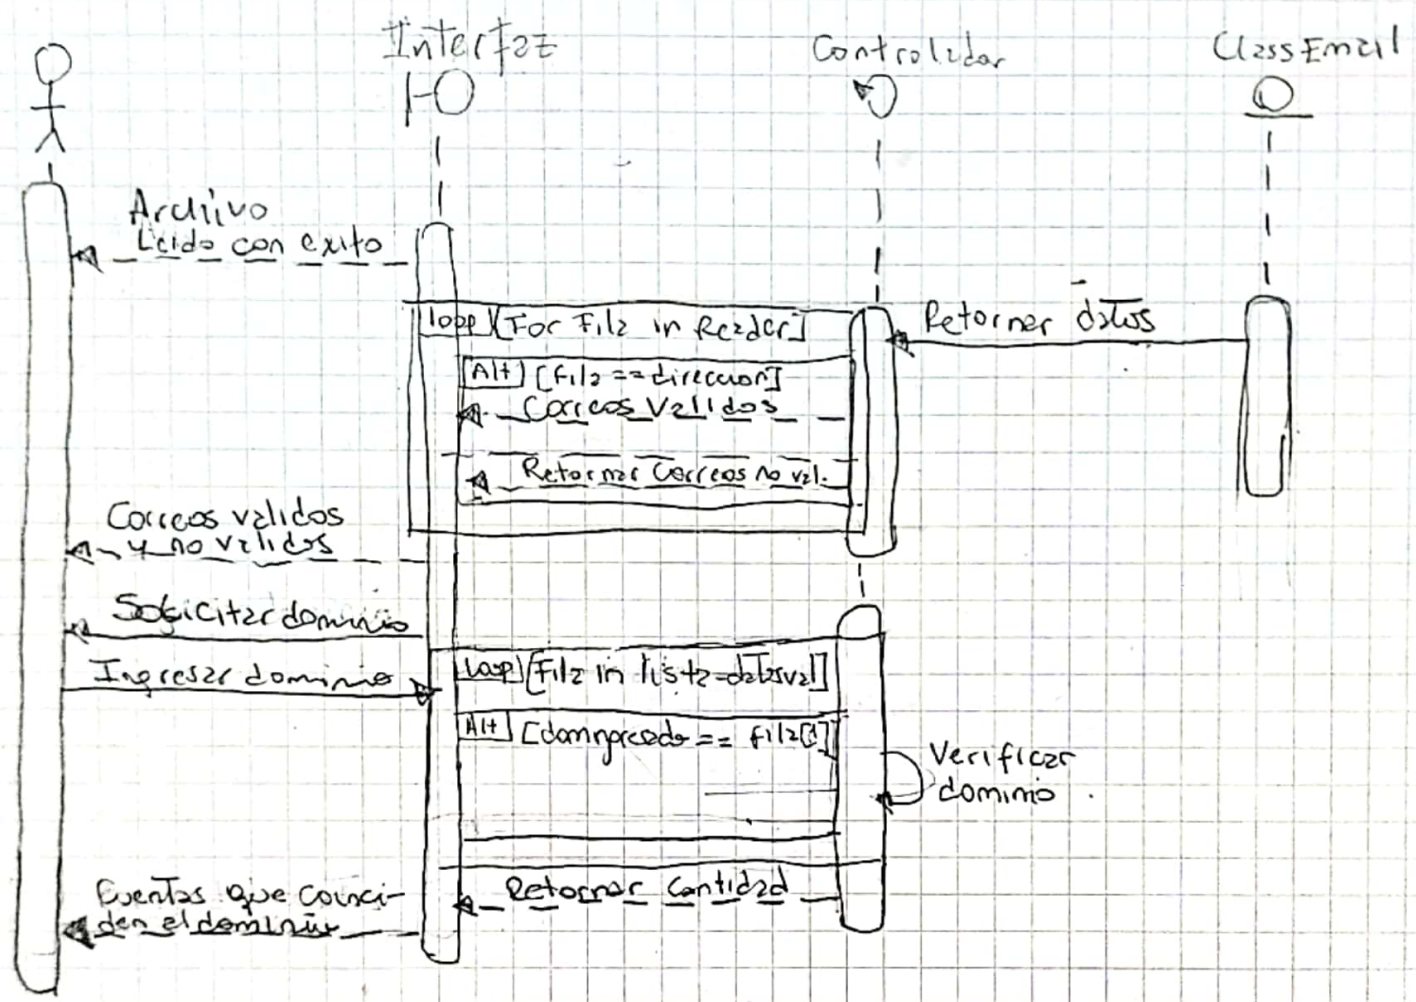 Interfaz
Controlador
ClassEmail
Archivo
Leido con exito
Retornar datos
loop [For Fila in Reader]
Alt [fila == direccion]
Correos Validos
Retornar Correos no val.
Correos validos
y no validos
Solicitar dominio
Ingresar dominio
Loop [Fila in lista-datosval]
Alt [domingresado == fila[1]]
Verificar
dominio.
Retornar Cantidad
que coinci-
den el dominio